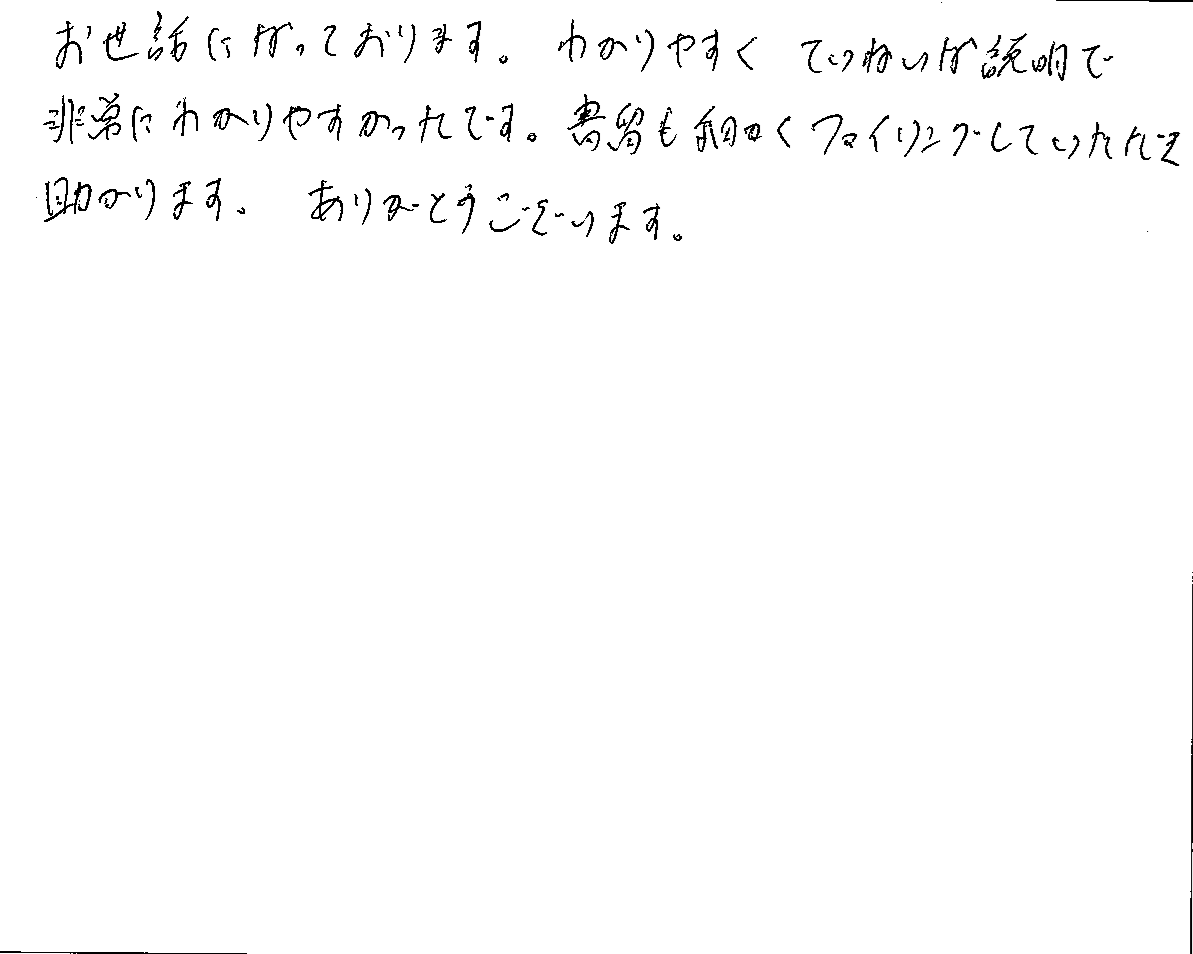 お世話になっております。 わかりやすく ていねいな説明で
非常にわかりやすかったです。書留も細かくファイリングしていただき
助かります。 ありがとうございます。